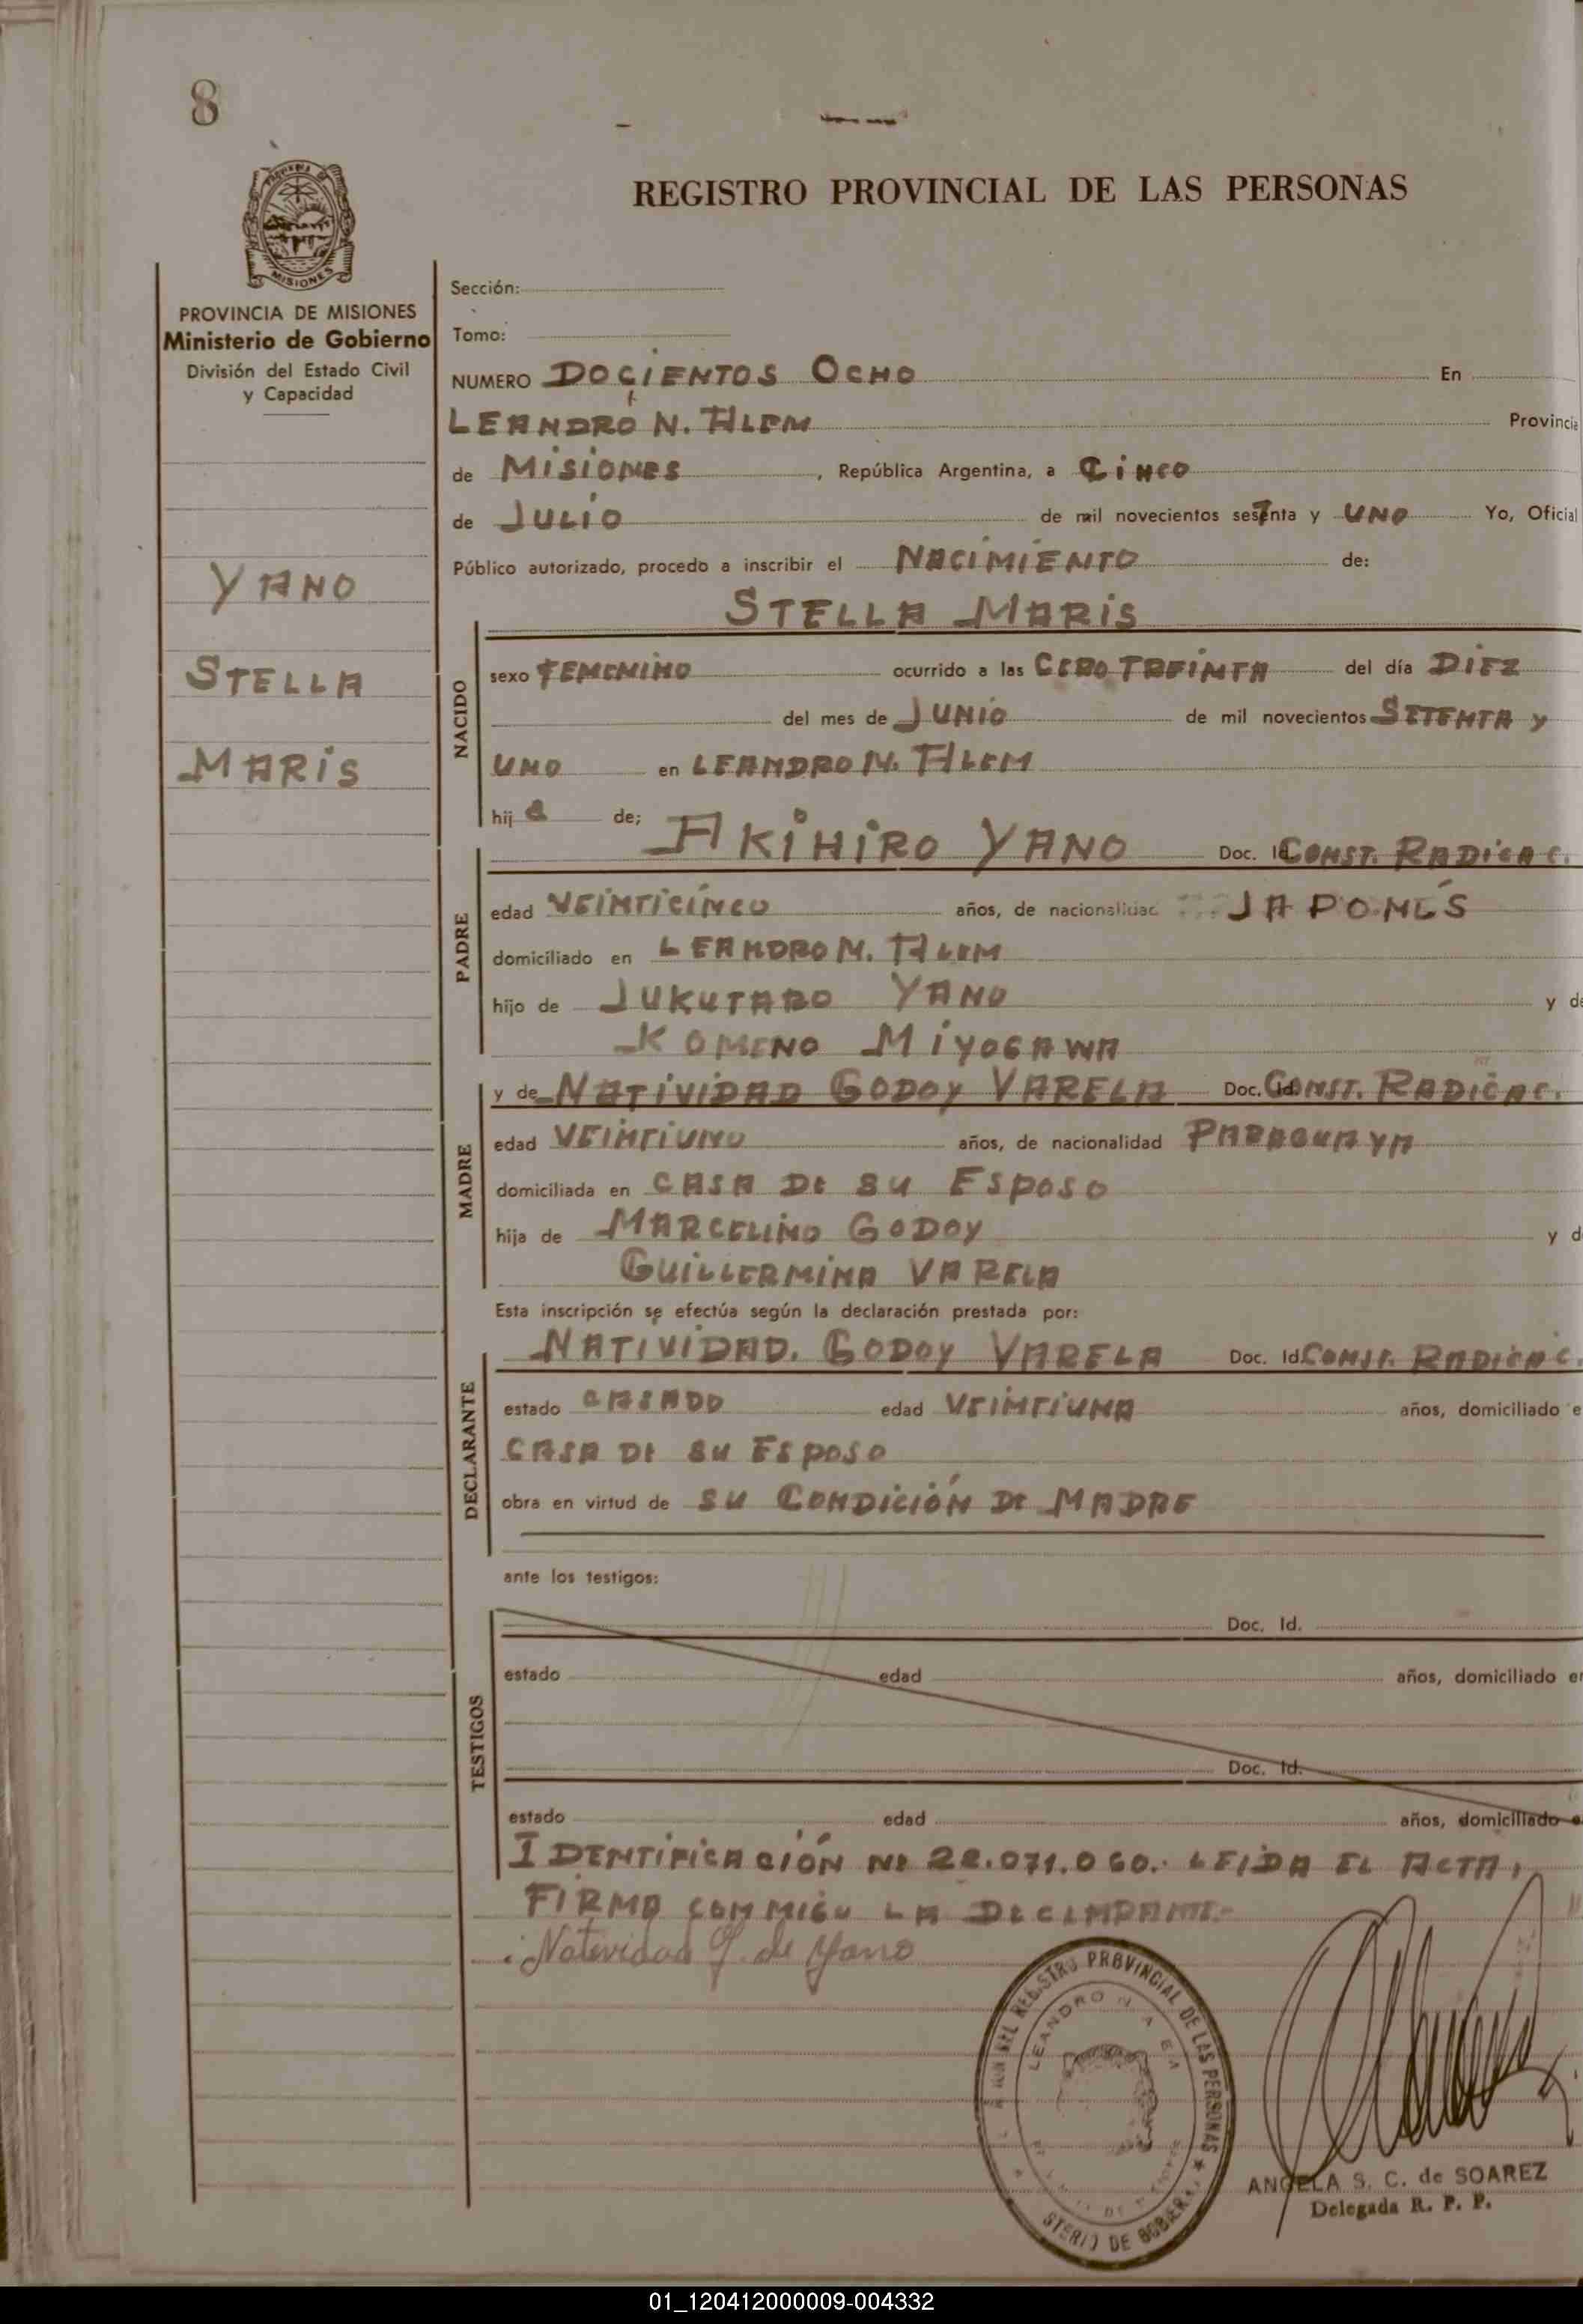 8
REGISTRO PROVINCIAL DE LAS PERSONAS
MISIONES
PROVINCIA DE MISIONES
Ministerio de Gobierno
División del Estado Civil
y Capacidad
YANO
STELLA
MARIS
Sección:
Tomo:
NUMERO DOCIENTOS OCHO En
LEANDRO N. ALEM Provincia
de MISIONES, República Argentina, a CINCO
de JULIO de mil novecientos setenta y UNO Yo, Oficial
Público autorizado, procedo a inscribir el NACIMIENTO de:
STELLA MARIS
NACIDO
sexo FEMENINO ocurrido a las CERO TREINTA del día DIEZ
del mes de JUNIO de mil novecientos SETENTA y
UNO en LEANDRO N. ALEM
hija de;
PADRE
AKIHIRO YANO Doc. Id. CONST. RADICAC.
edad VEINTICINCO años, de nacionalidad JAPONÉS
domiciliado en LEANDRO N. ALEM
hijo de JUKUTARO YANO y de
KOMENO MIYOGAWA
MADRE
y de NATIVIDAD GODOY VARELA Doc. Id. CONST. RADICAC.
edad VEINTIUNO años, de nacionalidad PARAGUAYA
domiciliada en CASA DE SU ESPOSO
hija de MARCELINO GODOY y d
GUILLERMINA VARELA
Esta inscripción se efectúa según la declaración prestada por:
DECLARANTE
NATIVIDAD. GODOY VARELA Doc. Id. CONST. RADICAC.
estado CASADO edad VEINTIUNA años, domiciliado e
CASA DE SU ESPOSO
obra en virtud de SU CONDICIÓN DE MADRE
ante los testigos:
TESTIGOS
Doc. Id.
estado edad años, domiciliado en
Doc. Id.
estado edad años, domiciliado e
IDENTIFICACIÓN Nº 22.071.060. LEIDA EL ACTA,
FIRMA CONMIGO LA DECLARANTE.-
Natividad G. de Yano
REGISTRO PROVINCIAL DE LAS PERSONAS
LEANDRO N. A EM
STERIO DE GOBIER
ANGELA S. C. de SOAREZ
Delegada R. P. P.
01_120412000009-004332